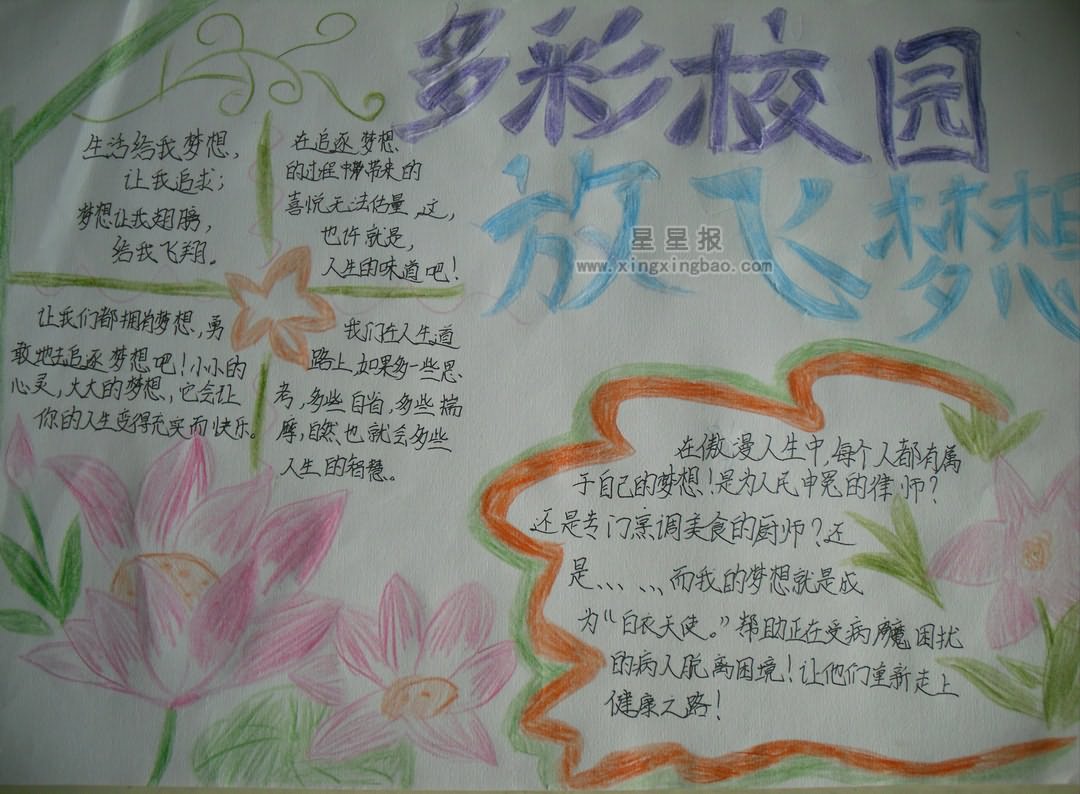 多彩校园
放飞梦想
星星报
www.xingxingbao.com
生活给我梦想，
让我追求；
梦想让我翅膀，
给我飞翔。
在追逐梦想
的过程中带来的
喜悦无法估量，这，
也许就是，
人生的味道吧！
让我们都拥有梦想，勇
敢地去追逐梦想吧！小小的
心灵，大大的梦想，它会让
你的人生变得充实而快乐。
我们在人生道
路上，如果多一些思
考，多些自省，多些揣
摩，自然也就会多些
人生的智慧。
在傲漫人生中，每个人都有属
于自己的梦想！是为人民申冤的律师？
还是专门烹调美食的厨师？还
是、、、、而我的梦想就是成
为“白衣天使。”帮助正在受病魔困扰
的病人脱离困境！让他们重新走上
健康之路！